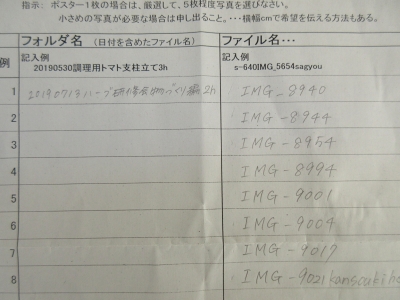 指示: ポスター1枚の場合は、厳選して、5枚程度写真を選びなさい。
小さめの写真が必要な場合は申し出ること。・・・横幅cmで希望を伝える方法もある。
フォルダ名 (日付を含めたファイル名) ファイル名・・・
例 記入例 記入例
20190530調理用トマト支柱立て3h s-640IMG_5654sagyou
1 20190713ハーブ研修会 2h IMG-8940
2 IMG-8944
3 IMG-8954
4 IMG-8994
5 IMG-9001
6 IMG-9004
7 IMG-9017
8 IMG-9021